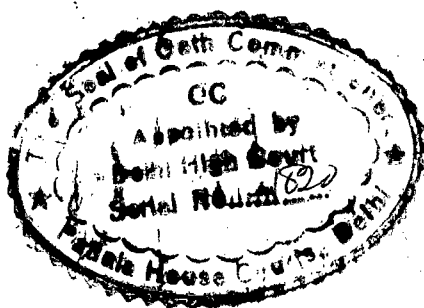 The Seal of Oath Commissioner
OC
Appointed by
Delhi High Court
Serial 820
Patiala House Courts, Delhi